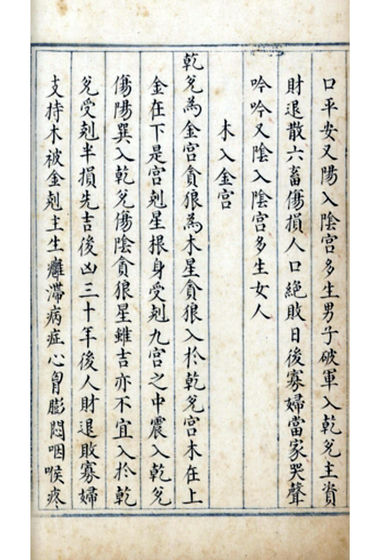 口平安又陽入陰宮多生男子破軍入乾兌主資
財退散六畜傷損人口絕敗日後寡婦當家哭聲
吟吟又陰入陰宮多生女人
木入金宮
乾兌為金宮貪狼為木星貪狼入於乾兌宮木在上
金在下是宮剋星根身受剋九宮之中震入乾兌
傷陽巽入乾兌傷陰貪狼星雖吉亦不宜入於乾
兌受剋半損先吉後凶三十年後人財退敗寡婦
支持木被金剋主生癱滯病症心胷膨悶咽喉疼